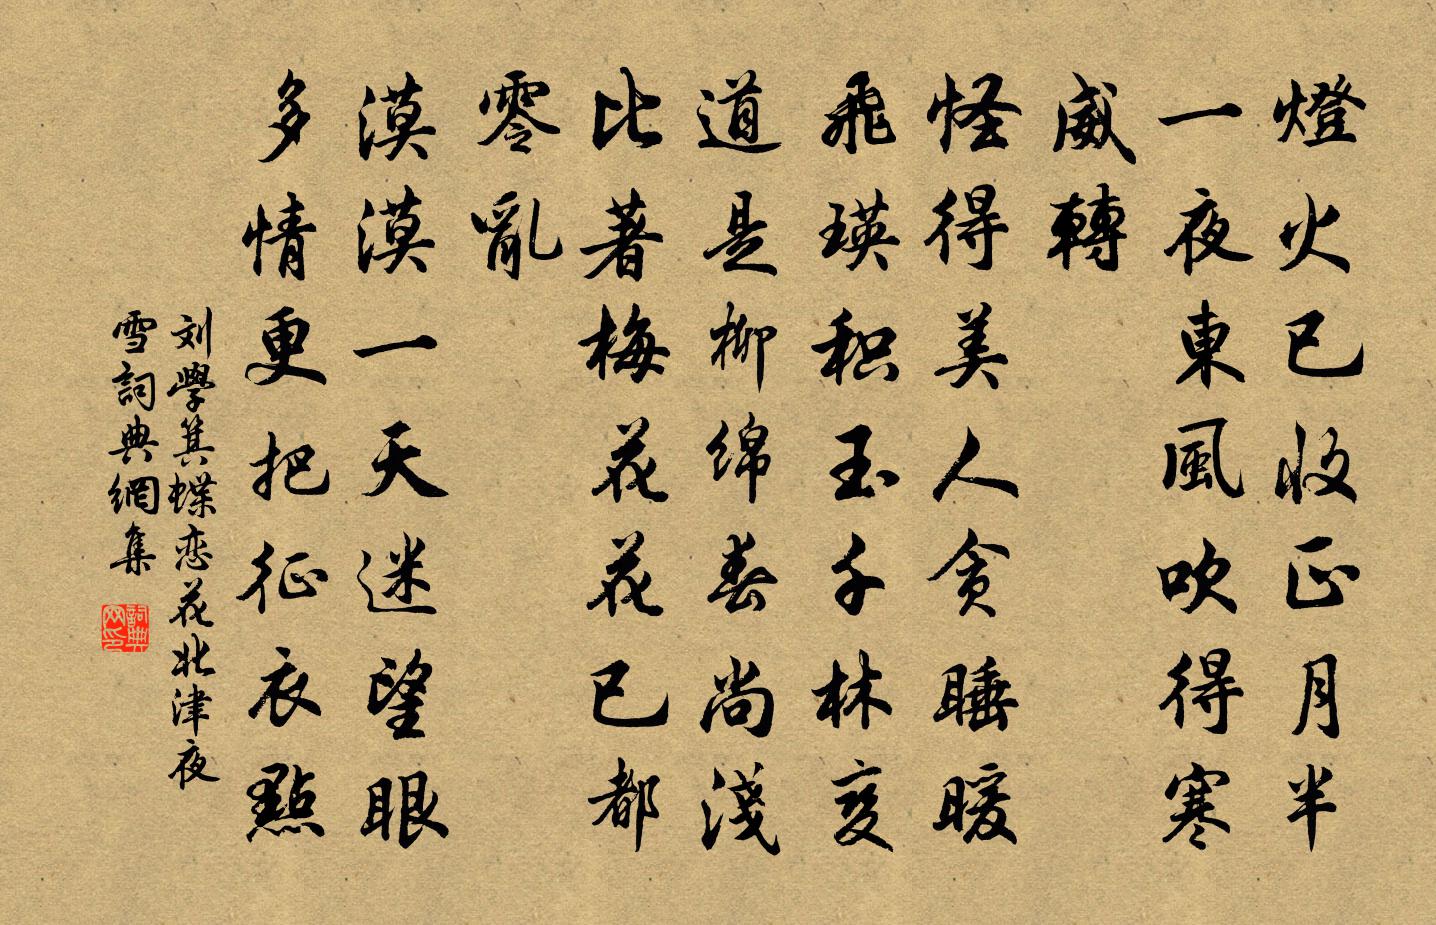 燈火已收正月半
一夜東風吹得寒
威轉
怪得美人貪睡暖
飛瑛积玉千林变
道是柳绵春尚淺
比著梅花花已都
零亂
漠漠一天迷望眼
多情更把征衣點
刘學箕蝶恋花北津夜
雪詞典網集
詞典
网印